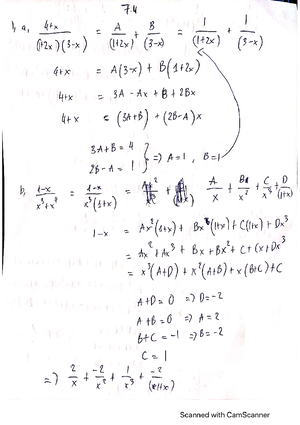 7.4
1, a, (4+x)/((1+2x)(3-x)) = A/(1+2x) + B/(3-x) = 1/(1+2x) + 1/(3-x)
4+x = A(3-x) + B(1+2x)
4+x = 3A - Ax + B + 2Bx
4+x = (3A+B) + (2B-A)x
3A+B = 4
2B-A = 1 } => A=1, B=1
b, (1-x)/(x³+x⁴) = (1-x)/(x³(1+x)) = A/x + B/x² + C/x³ + D/(1+x)
1-x = Ax²(1+x) + Bx(1+x) + C(1+x) + Dx³
= Ax² + Ax³ + Bx + Bx² + C + Cx + Dx³
= x³(A+D) + x²(A+B) + x(B+C) + C
A+D = 0 => D=-2
A+B=0 => A=2
B+C = -1 => B=-2
C = 1
=> 2/x + -2/x² + 1/x³ + -2/(1+x)
Scanned with CamScanner